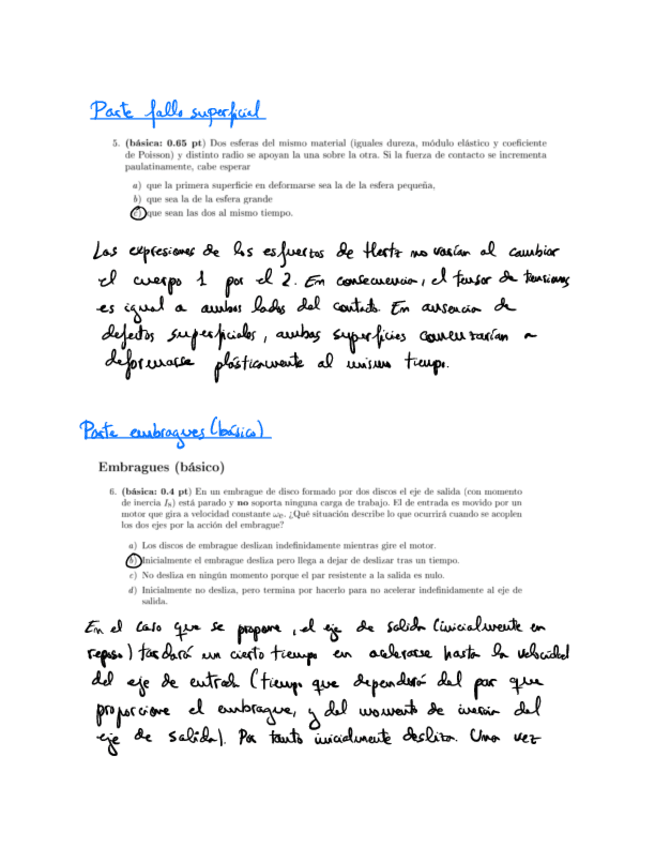 Parte fallo superficial
5. (básica: 0.65 pt) Dos esferas del mismo material (iguales dureza, módulo elástico y coeficiente
de Poisson) y distinto radio se apoyan la una sobre la otra. Si la fuerza de contacto se incrementa
paulatinamente, cabe esperar
a) que la primera superficie en deformarse sea la de la esfera pequeña,
b) que sea la de la esfera grande
c) que sean las dos al mismo tiempo.
Las expresiones de los esfuerzos de Hertz no varían al cambiar
el cuerpo 1 por el 2. En consecuencia, el tensor de tensiones
es igual a ambos lados del contacto. En ausencia de
defectos superficiales, ambas superficies comenzarían a
deformarse plásticamente al mismo tiempo.
Parte embragues (básico)
Embragues (básico)
6. (básica: 0.4 pt) En un embrague de disco formado por dos discos el eje de salida (con momento
de inercia Is) está parado y no soporta ninguna carga de trabajo. El de entrada es movido por un
motor que gira a velocidad constante ωe. ¿Qué situación describe lo que ocurrirá cuando se acoplen
los dos ejes por la acción del embrague?
a) Los discos de embrague deslizan indefinidamente mientras gire el motor.
b) Inicialmente el embrague desliza pero llega a dejar de deslizar tras un tiempo.
c) No desliza en ningún momento porque el par resistente a la salida es nulo.
d) Inicialmente no desliza, pero termina por hacerlo para no acelerar indefinidamente al eje de
salida.
En el caso que se propone, el eje de salida (inicialmente en
reposo) tardará un cierto tiempo en acelerarse hasta la velocidad
del eje de entrada (tiempo que dependerá del par que
proporcione el embrague, y del momento de inercia del
eje de salida). Por tanto inicialmente desliza. Una vez